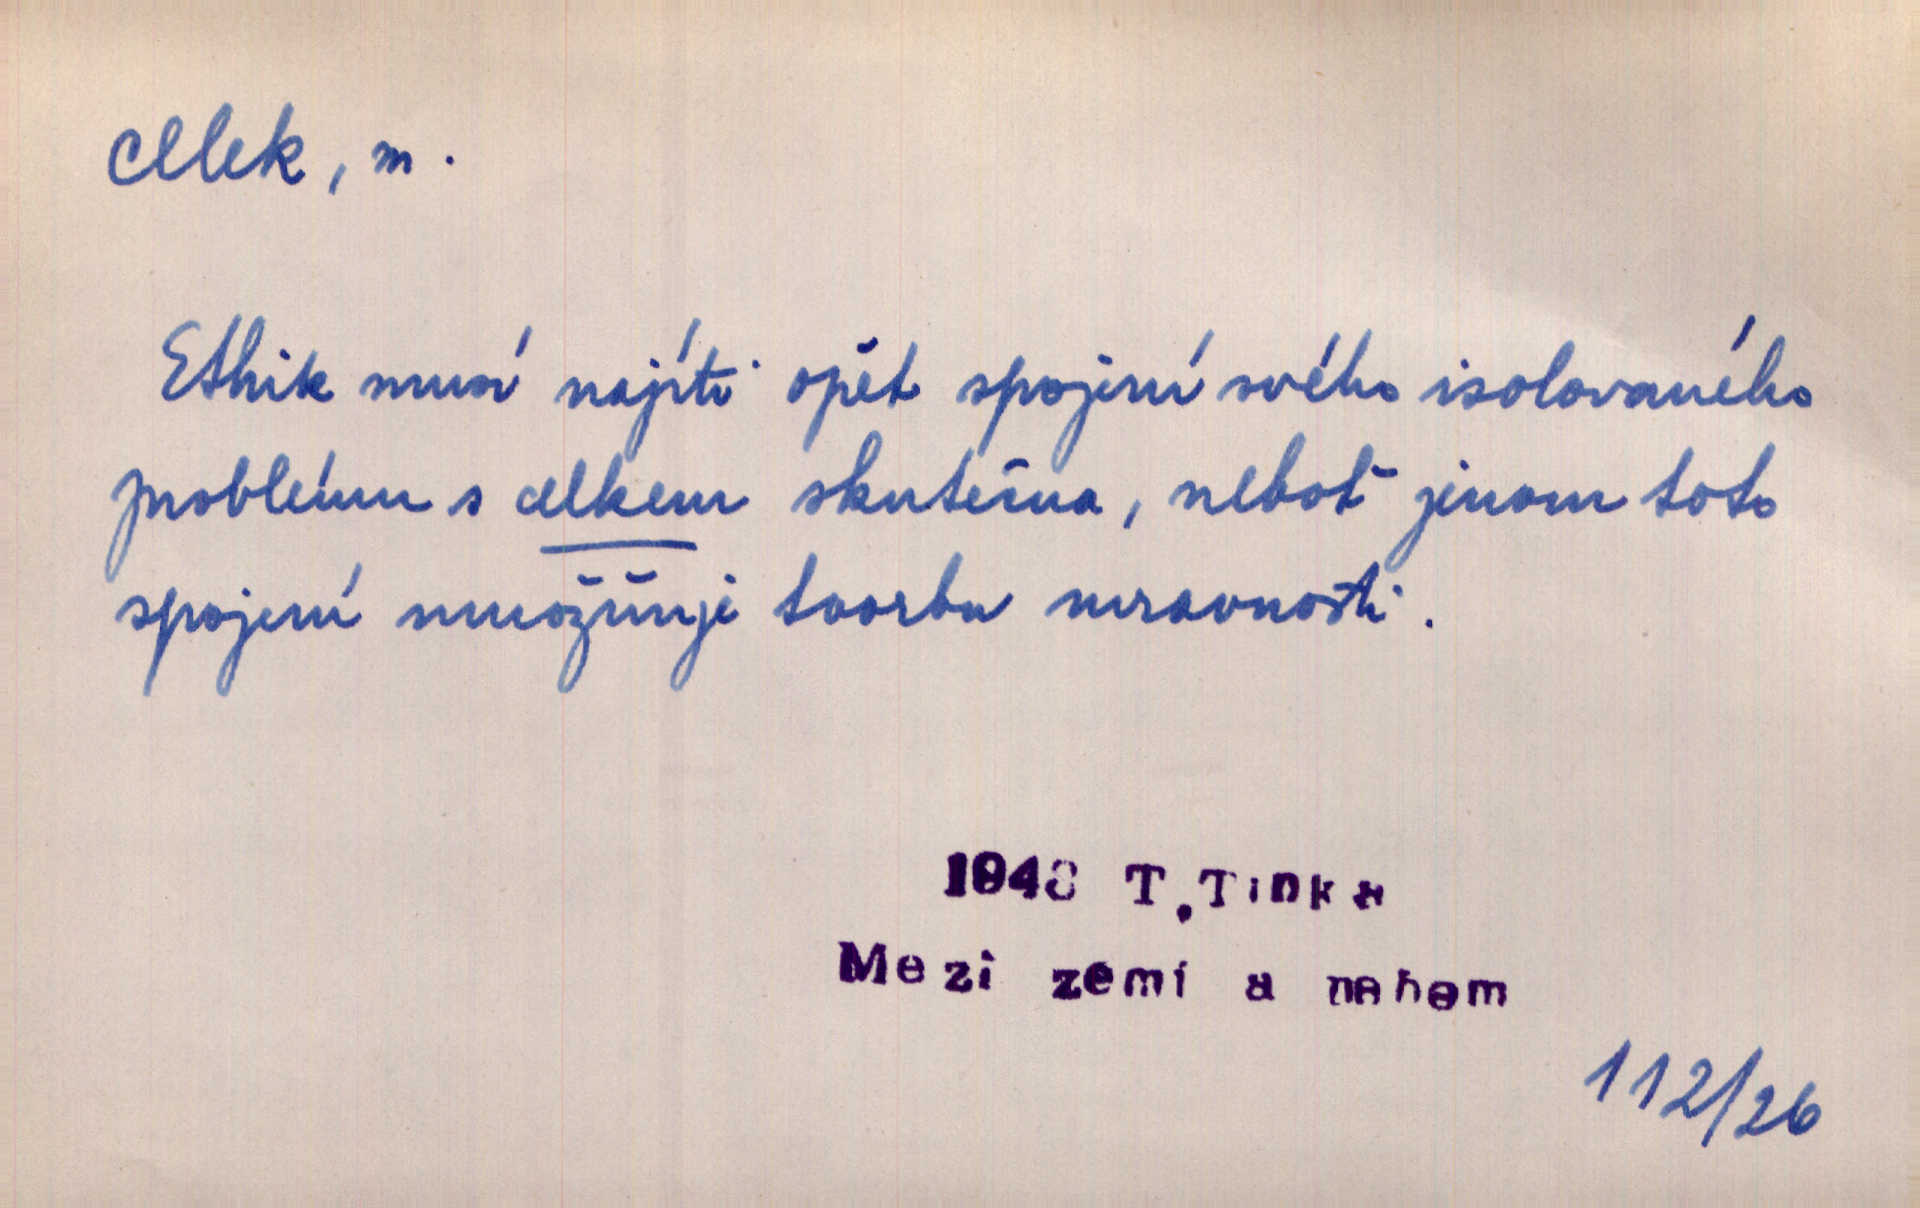 celek, m.
Ethik musí najíti opět spojení svého isolovaného
problému s celkem skutečna, neboť jenom toto
spojení umožňuje tvorbu mravnosti.
1948 T.Tinka
Mezi zemí a nebem
112/26